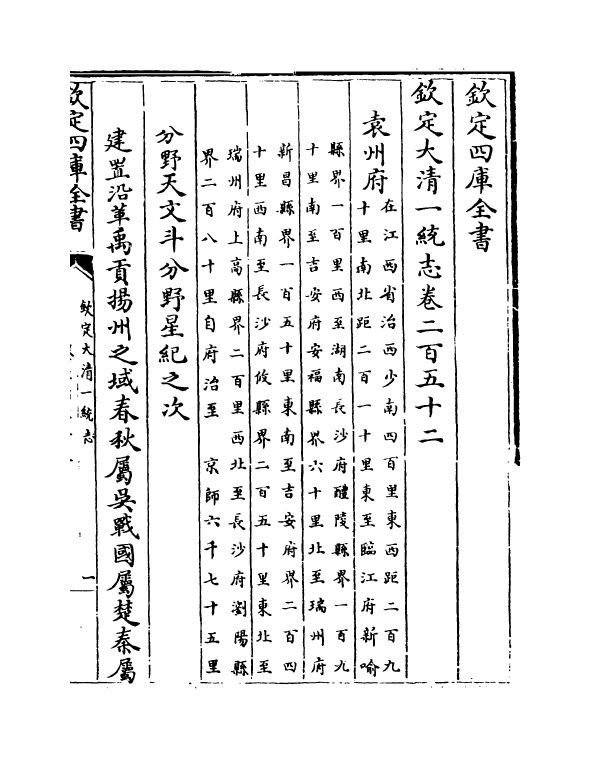 欽定四庫全書
欽定大清一統志卷二百五十二
袁州府
在江西省治西少南四百里東西距二百九
十里南北距二百一十里東至臨江府新喻
縣界一百里西至湖南長沙府醴陵縣界一百九
十里南至吉安府安福縣界六十里北至瑞州府
新昌縣界一百五十里東南至吉安府界二百四
十里西南至長沙府攸縣界二百五十里東北至
瑞州府上高縣界二百里西北至長沙府瀏陽縣
界二百八十里自府治至 京師六千七十五里
分野天文斗分野星紀之次
建置沿革禹貢揚州之域春秋屬吳戰國屬楚秦屬
欽定四庫全書
欽定大清一統志
一